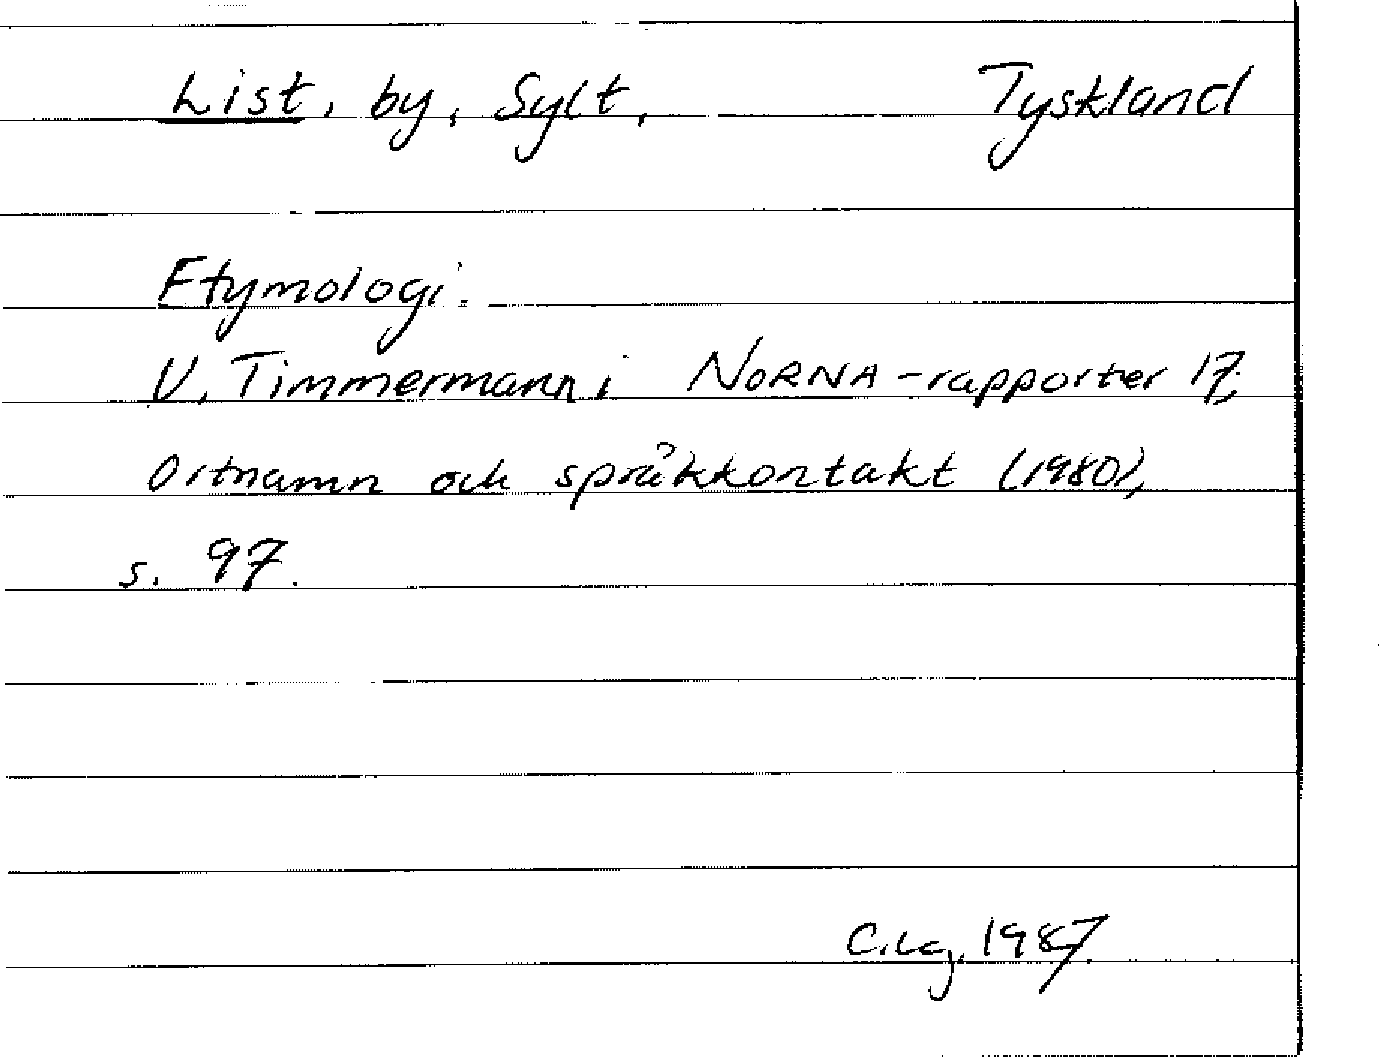 List, by, Sylt, Tyskland
Etymologi.
U. Timmermann i NORNA-rapporter 17.
Ortnamn och språkkontakt (1980),
s. 97.
C.Lg. 1987.